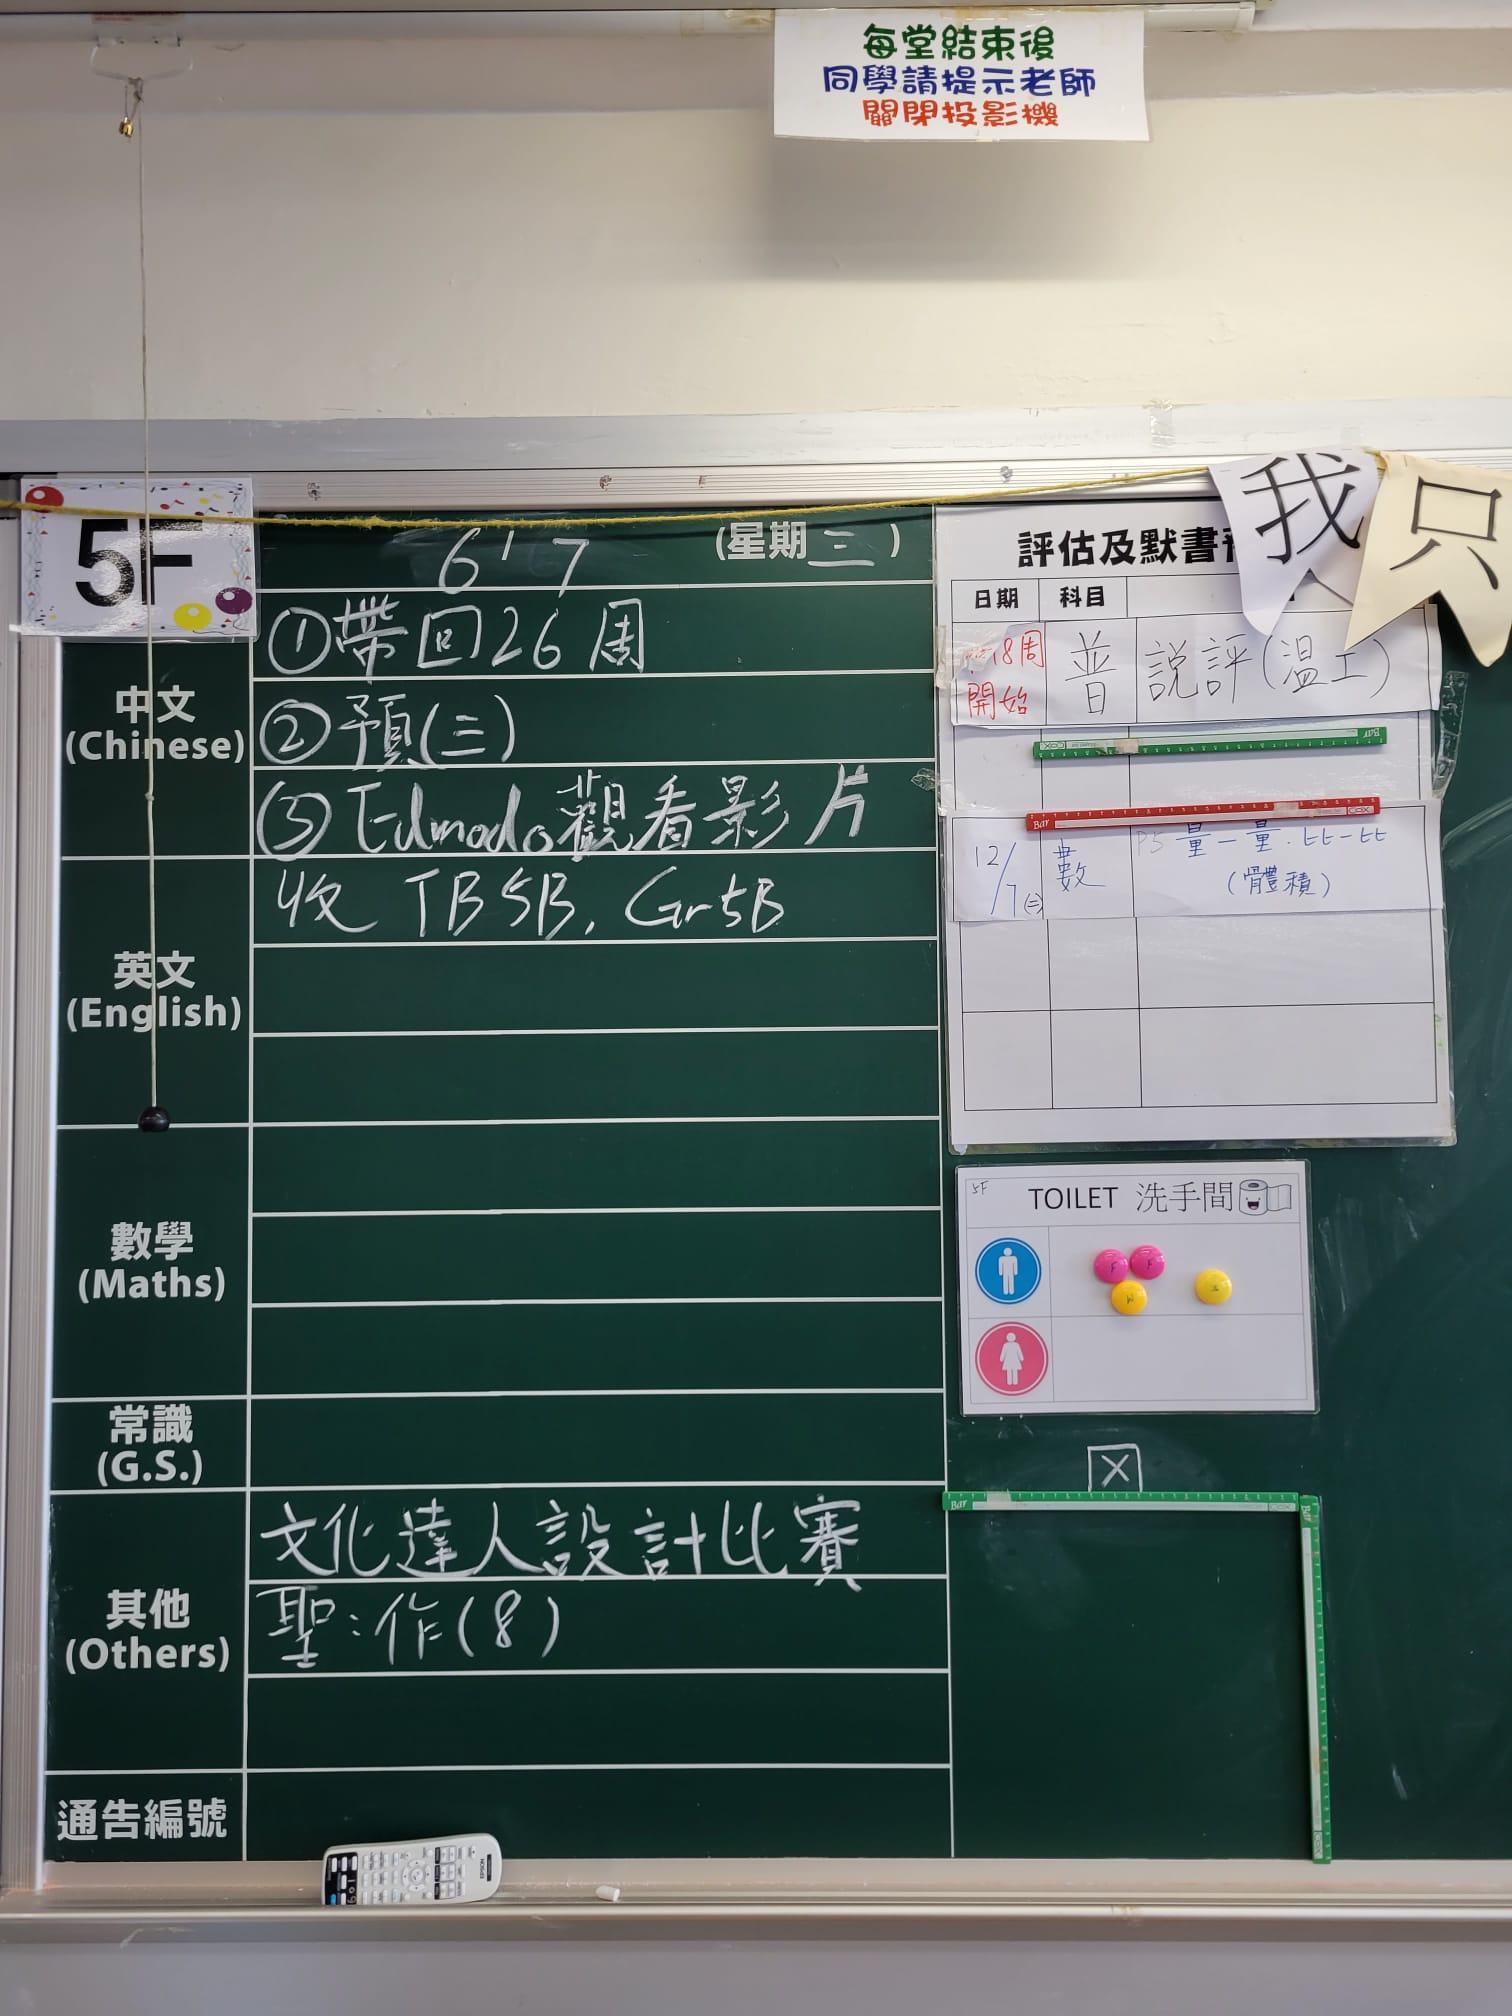 每堂結束後
同學請提示老師
關閉投影機
5F
6/7
(星期三)
中文
(Chinese)
①帶回26周
②預(三)
③Edmodo觀看影片
英文
(English)
收 TB5B, Gr5B
數學
(Maths)
常識
(G.S.)
其他
(Others)
文化達人設計比賽
聖:作(8)
通告編號
我
只
評估及默書
日期 科目
18周
開始
普
說評(溫工)
12/7(三)
數
P5 量一量.比一比
(體積)
5F
TOILET 洗手間
F F
M M
X
EPSON